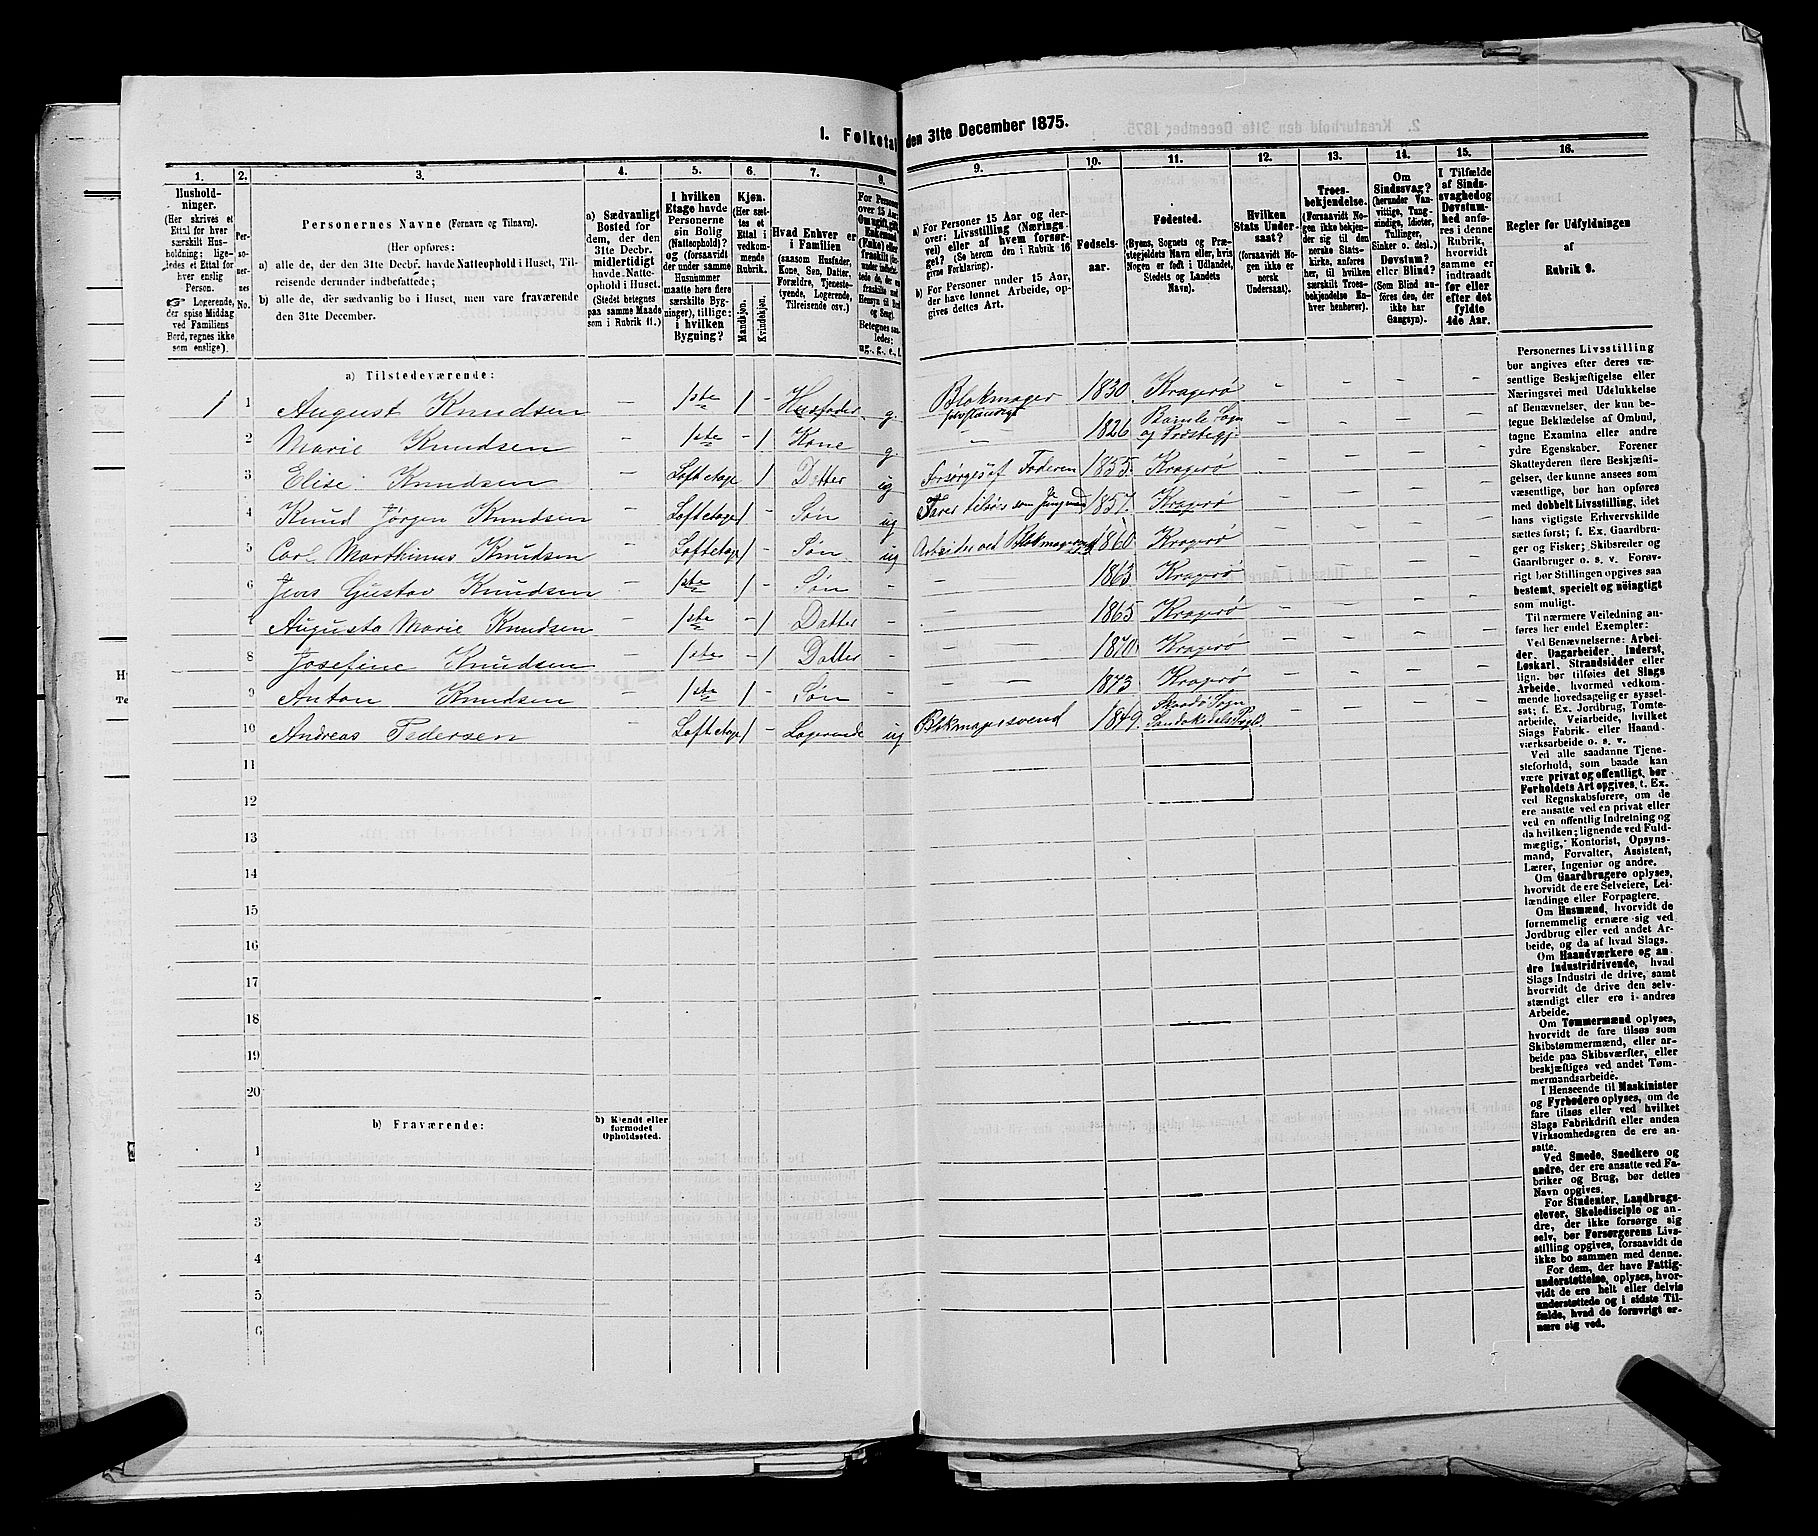 1. Folketal den 31te December 1875.
1.
2.
3.
4.
5.
6.
7.
8.
9.
10.
11.
12.
13.
14.
15.
16.
Husholdninger.
(Her skrives et
Ettal for hver
særskilt Husholdning;
ligeledes et Ettal for
hver enslig
Person.
Logerende,
der spise Middag
ved Familiens
Bord, regnes ikke
som enslige).
Personernes No.
Personernes Navne (Fornavn og Tilnavn).
(Her opføres:
a) alle de, der den 31te Decbr. havde Natteophold i Huset, Tilreisende derunder indbefattede;
b) alle de, der sædvanlig bo i Huset, men vare fraværende
den 31te December.
a) Sædvanligt
Bosted for
dem, der den
31te Decbr.
midlertidigt
havde Natteophold i Huset.
(Stedet betegnes
paa samme Maade
som i Rubrik 11.)
I hvilken
Etage havde
Personerne
sin Bolig
(Natteophold)?
og (forsaavidt
der under samme
Husnummer
maatte høre flere
særskilte Bygninger), tillige:
i hvilken
Bygning?
Kjøn.
(Her sættes et
Ettal i
vedkommende
Rubrik.
Mandkjøn.
Kvindekjøn.
Hvad Enhver er
i Familien
(saasom Husfader,
Kone, Søn, Datter,
Forældre, Tjenestetyende, Logerende,
Tilreisende osv.)
a) For Personer 15 Aar og derover: Livsstilling (Næringsvei) eller af hvem forsørget? (Se herom den i Rubrik 16
givne Forklaring).
b) For Personer under 15 Aar,
der have lønnet Arbeide, opgives dettes Art.
Fødselsaar.
Fødested.
(Byens, Sognets og Præstegjeldets Navn eller, hvis
Nogen er født i Udlandet,
Stedets og Landets
Navn).
Hvilken
Stats Undersaat?
(forsaavidt Nogen ikke er
norsk
Undersaat).
Troesbekjendelse.
(Forsaavidt Nogen ikke bekjender sig til den
norske Statskirke, anføres
her, til hvilken
særskilt Troesbekjendelse Enhver henhører).
Om
Sindssvag?
(herunder Vanvittige, Tungsindige, Idioter,
Tullinger,
Sinker o. desl.)
Døvstum?
eller Blind?
(Som Blind anføres den, der
ikke har
Gangsyn).
I Tilfælde
af Sindssvaghed og
Døvstumhed anføres i denne
Rubrik,
hvorvidt
samme er
indtraadt
før eller
efter det
fyldte
4de Aar.
Regler for Udfyldningen
af
Rubrik 9.
a) Tilstedeværende:
1 1 August Knudsen – 1ste 1 – Husfader g. Blokmager selvstændigt 1830. Kragerø – – – –
2 Marie Knudsen – 1ste – 1 Kone g. – 1826 Bamle Sogn og Præstegj. – – – –
3 Elise Knudsen – Loftetage 1 Datter ug Forsørges af Faderen 1855. Kragerø – – – –
4 Knud Jørgen Knudsen – Loftetage 1 – Søn ug Farer tilsøs som Jungmand 1857. Kragerø – – – –
5 Carl Marthinus Knudsen – Loftetage 1 – Søn ug Arbeider ved 1860 Kragerø – – – –
6 Jens Gustav Knudsen – 1ste 1 – Søn – – 1863 Kragerø – – – –
7 Augusta Marie Knudsen – 1ste – 1 Datter – – 1865 Kragerø – – – –
8 Josefine Knudsen – 1ste – 1 Datter – – 1870. Kragerø – – – –
9 Anton Knudsen – 1ste 1 – Søn – – 1873 Kragerø – – – –
10 Andreas Pedersen – Loftetage 1 – Logerende ug Blokmagersvend 1849. Skaadø Sogn – – – –
11
12
13
14
15
16
17
18
19
20
b) Fraværende:
b) Kjendt eller
formodet
Opholdssted.
1
2
3
4
5
6
Personernes Livsstilling
bør angives efter deres væsentlige Beskjæftigelse eller
Næringsvei med Udelukkelse
af Benævnelser, der kun betegne Beklædelse af Ombud,
tagne Examina eller andre
ydre Egenskaber. Forener
Skatteyderen flere Beskjæftigelser, der kunne ansees som
væsentlige, bør han opføres
med dobbelt Livsstilling, idet
hans vigtigste Erhvervskilde
sættes først; f. Ex. Gaardbruger og Fisker; Skibsreder og
Gaardbruger o. s. v. Forøvrigt bør Stillingen opgives saa
bestemt, specielt og nöiagtigt
som muligt.
Til nærmere Veiledning anføres her endel Exempler:
Ved Benævnelserne: Arbeider, Dagarbeider, Inderst,
Løskarl, Strandsidder eller
lign. bør tilføies det Slags
Arbeide, hvormed vedkommende hovedsagelig er sysselsat; f. Ex. Jordbrug, Tomtearbeide, Veiarbeide, hvilket
Slags Fabrik- eller Haandværksarbeide o. s. v.
Ved alle saadanne Tjenesteforhold, som baade kan
være privat og offentligt, bør
Forholdets Art opgives, t. Ex.
ved Regnskabsførere, om de
ere ansatte ved en privat eller
ved en offentlig Indretning og
da hvilken; lignende ved Fuldmægtig, Kontorist, Opsynsmand, Forvalter, Assistent,
Lærer, Ingeniør og andre.
Om Gaardbrugere oplyses,
hvorvidt de ere Selveiere, Leilændinge eller Forpagtere.
Om Husmænd, hvorvidt de
fornemmelig ernære sig ved
Jordbrug eller ved andet Arbeide, og da af hvad Slags.
Om Haandværkere og andre Industridrivende, hvad
Slags Industri de drive, samt
hvorvidt de drive den selvstændigt eller ere i andres
Arbeide.
Om Tømmermænd oplyses,
hvorvidt de fare tilsøs som
Skibstømmermænd, eller arbeide paa Skibsværfter, eller
beskjæftiges ved andet Tømmermandsarbeide.
I Henseende til Maskinister
og Fyrbødere oplyses, om de
fare tilsøs eller ved hvilket
Slags Fabrikdrift eller anden
Virksomhedsgren de ere ansatte.
Ved Smede, Snedkere og
andre, der ere ansatte ved Fabriker og Brug, bør dettes
Navn opgives.
For Studenter, Landbrugselever, Skoledisciple og andre, der ikke forsørge sig
selv, bør Forsørgerens Livsstilling opgives, forsaavidt de
ikke bo sammen med denne.
For dem, der have Fattigunderstøttelse, oplyses, hvorvidt de ere helt eller delvis
understøttede og i sidste Tilfælde, hvad de forøvrigt ernære sig ved.